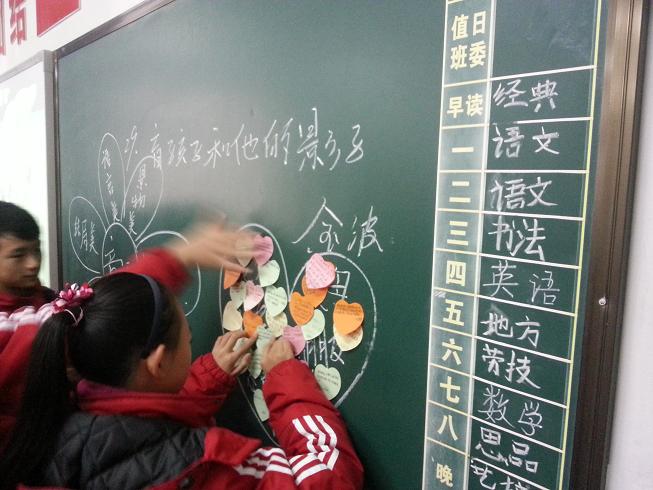 结
盲孩子和他的影子
金波
语言美
景物美
结局美
值日班委
早读 经典
一 语文
二 语文
三 书法
四 英语
五 地方
六 劳技
七 数学
八 思品
晚